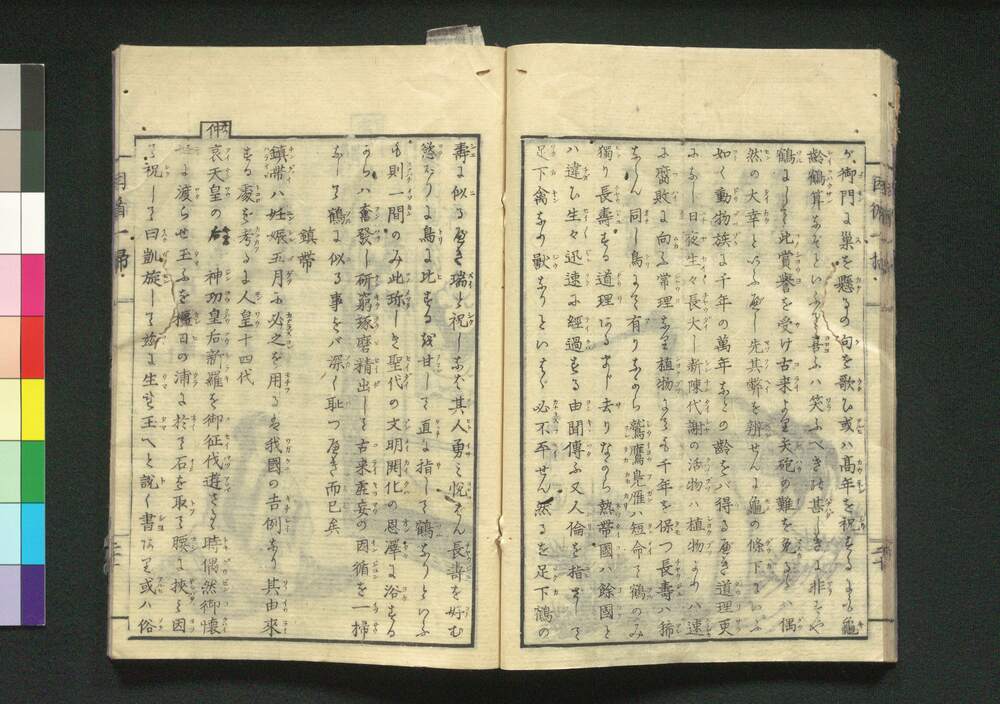 ゲ御門に巣を懸るの句を歌ひ或ハ高年を祝するにも龜
齢鶴算などといふを喜ふハ笑ふべきの甚しきに非ずや
鶴にして此賞誉を受け古来より矢砲の難を免るゝハ偶
然の大幸といふべし先其弊を辨せんに龜の條下にいふ
如く動物族に千年の萬年などの齢をバ得るべき道理更
になし日夜生々長大し新陳代謝の活物ハ植物よりハ速
に腐敗に向ふ常理なり植物にても千年を保つ長壽ハ稀
ならん同し鳥にて有りながら鷲鷹鳬雁ハ短命にて鶴のみ
獨り長壽する道理あるまじ去りながら熱帶國ハ餘國と
ハ違ひ生々迅速に經過する由聞傳ふ又人倫を指して
足下禽なり獣なりといはゞ必不平せん然るを足下鶴の
壽に似るべき瑞と祝しなば其人勇み悦ばん長壽を好む
慾よりに鳥に比するを甘して直に指して鶴なりといふ
も則一間のみ此珎しき聖代の文明開化の恩澤に浴する
からハ奮發し研窮琢磨精出して古来妄の因循を一掃
なして鶴に似る事をバ深く耻つべき而已矣
鎮帶
鎮帶ハ妊娠五月に必之を用るは我國の吉例なり其由來
する処を考るに人皇十四代
仲
哀天皇の 神功皇后新羅を御征伐遊さるゝ時偶然御懐
に渡らせ玉ふを橿日の浦に於て石を取て腰に挾み因
て祝して曰凱旋して茲に生せ玉へと説く書あり或ハ俗
因循一掃